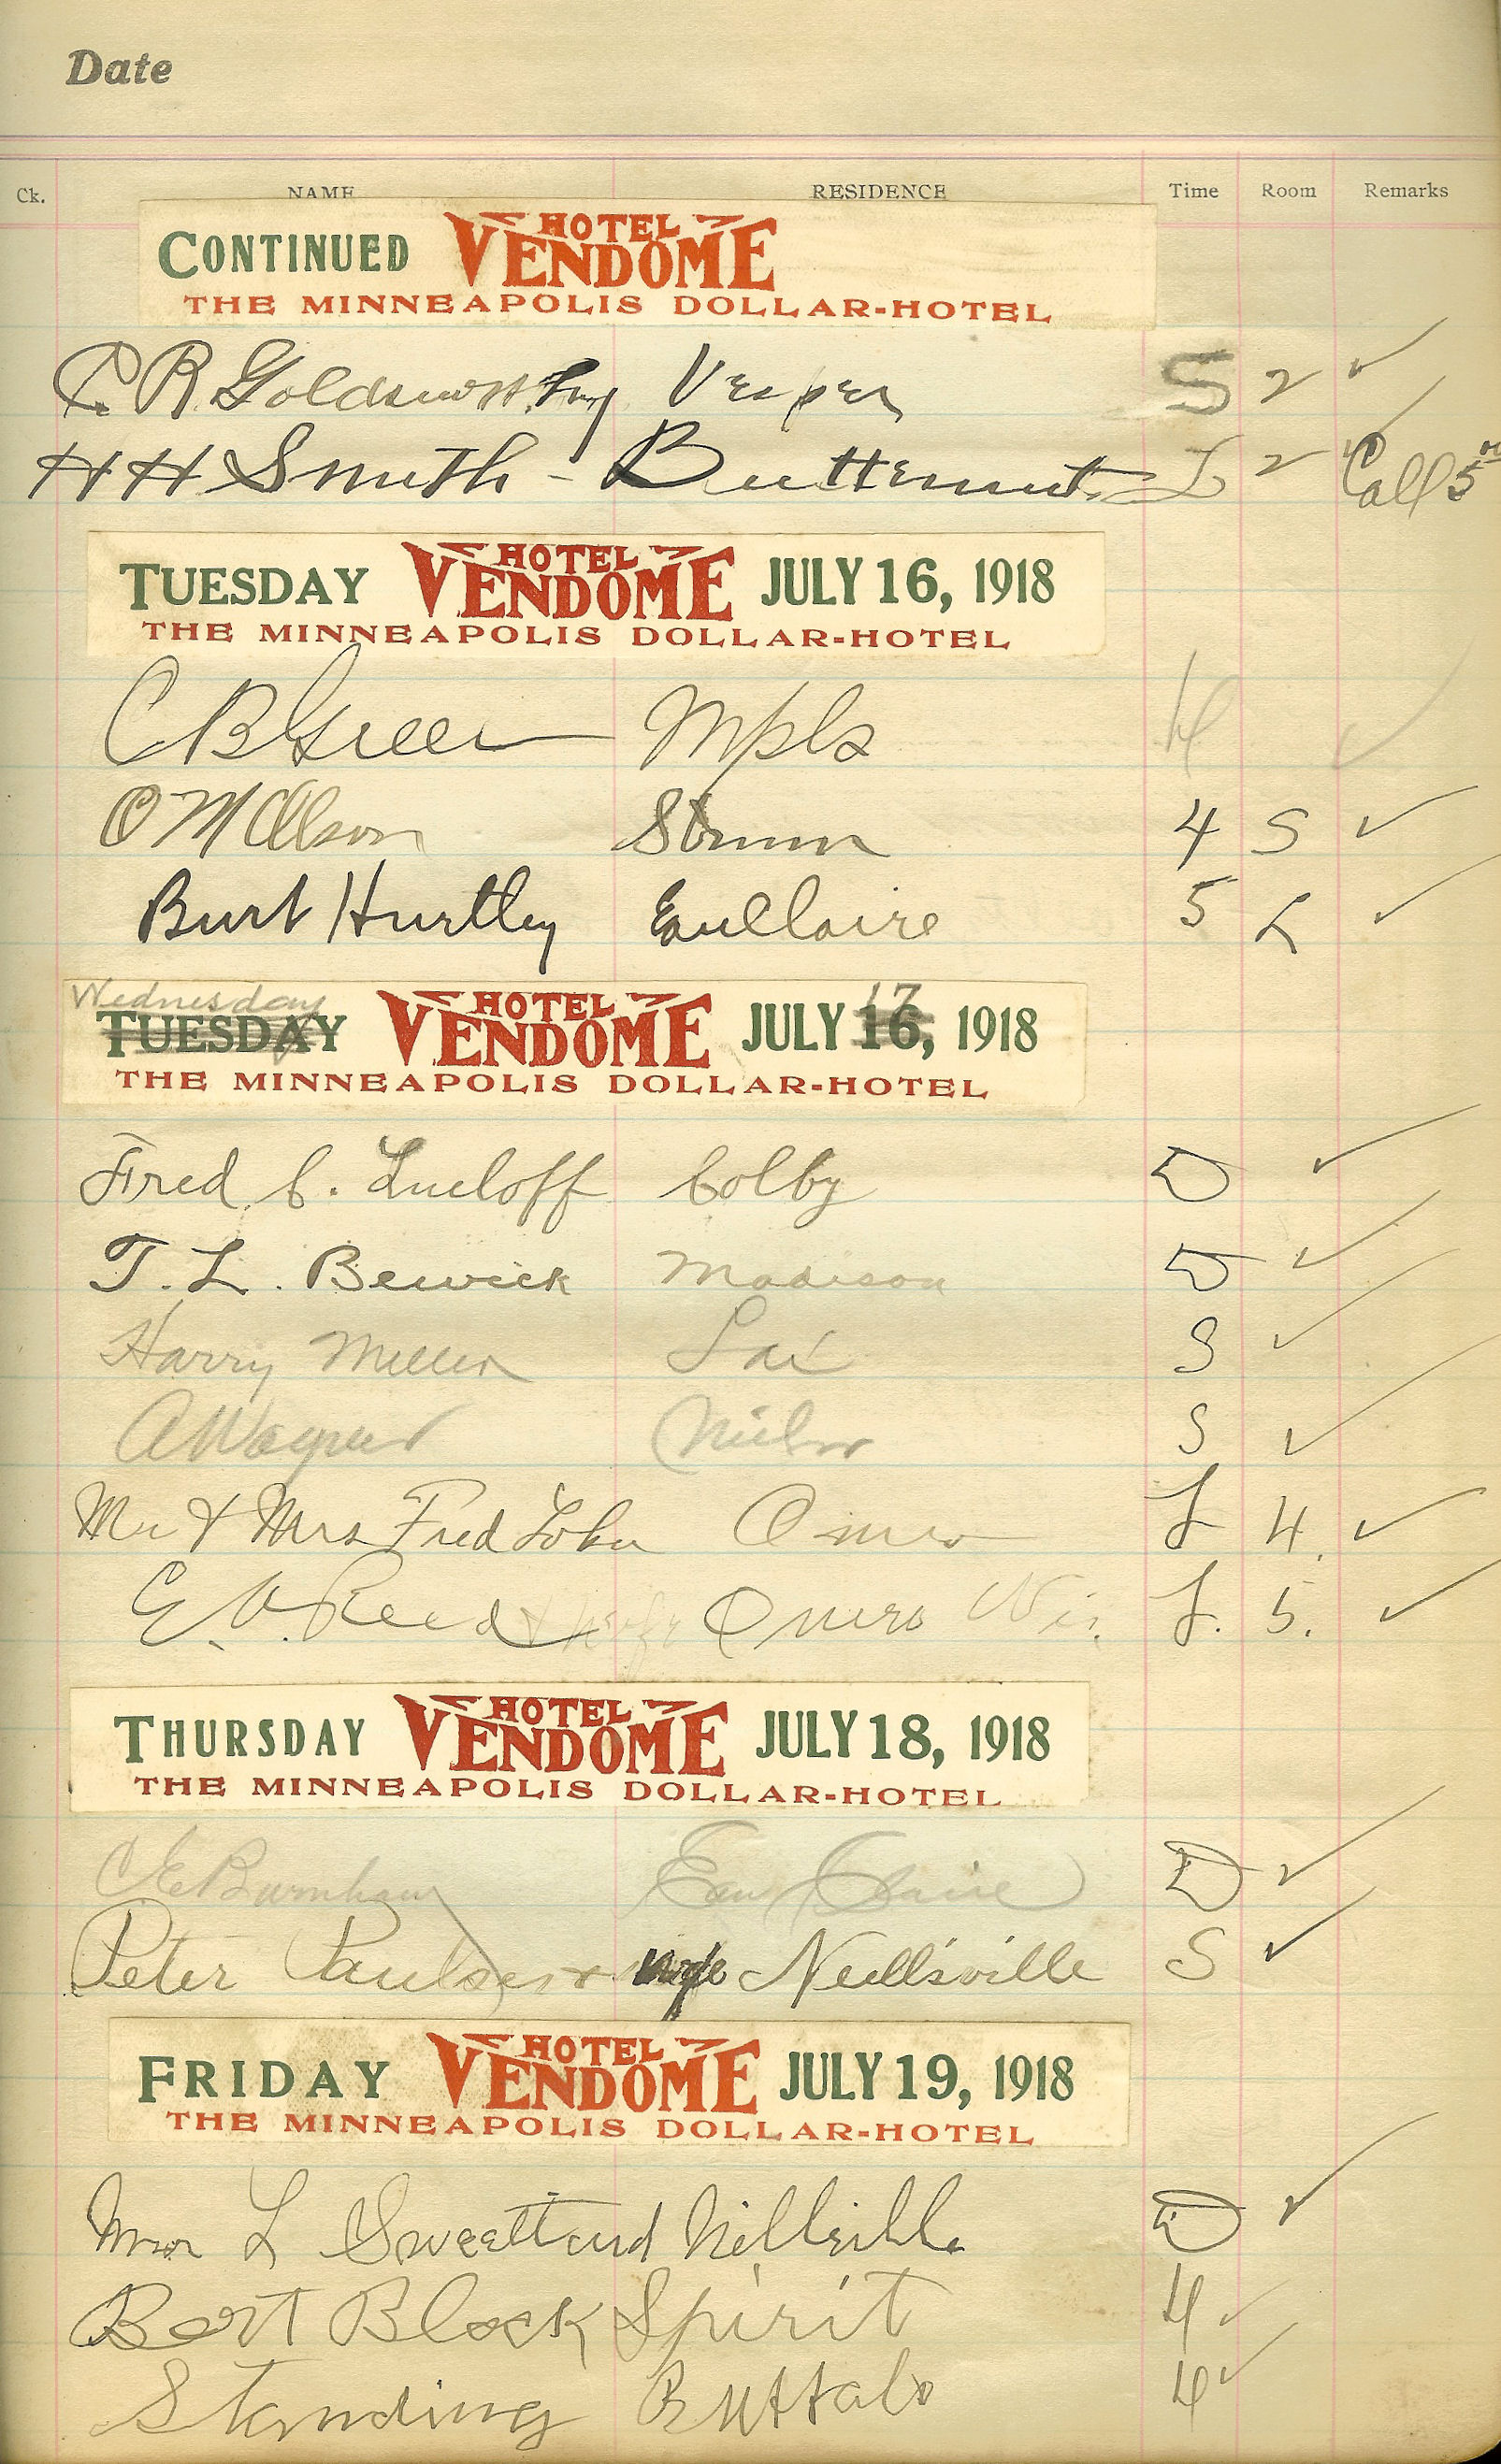 Date
Ck. NAME RESIDENCE Time Room Remarks
CONTINUED HOTEL VENDOME
THE MINNEAPOLIS DOLLAR-HOTEL
C. R. Goldsworthy Vesper S 2 ✓
H H Smith - Butternut L 2 ✓ Call 5
TUESDAY HOTEL VENDOME JULY 16, 1918
THE MINNEAPOLIS DOLLAR-HOTEL
C B Green Mpls ✓
O M Olson Strum 4 S ✓
Burt Hurtley Eau Claire 5 L ✓
Wednesday 17
TUESDAY HOTEL VENDOME JULY 16, 1918
THE MINNEAPOLIS DOLLAR-HOTEL
Fred C. Lueloff Colby D ✓
T. L. Bewick Madison D ✓
Harry Miller S ✓
A Wagner S ✓
Mr & Mrs Fred Omro L 4. ✓
E. V. Reed & wife Omro Wis. L. 5. ✓
THURSDAY HOTEL VENDOME JULY 18, 1918
THE MINNEAPOLIS DOLLAR-HOTEL
C E Burnham Eau Claire D ✓
Peter Paulsen & wife Neillsville S ✓
FRIDAY HOTEL VENDOME JULY 19, 1918
THE MINNEAPOLIS DOLLAR-HOTEL
L D ✓
Bert Block Spirit 4 ✓
Standing Buffalo 4 ✓